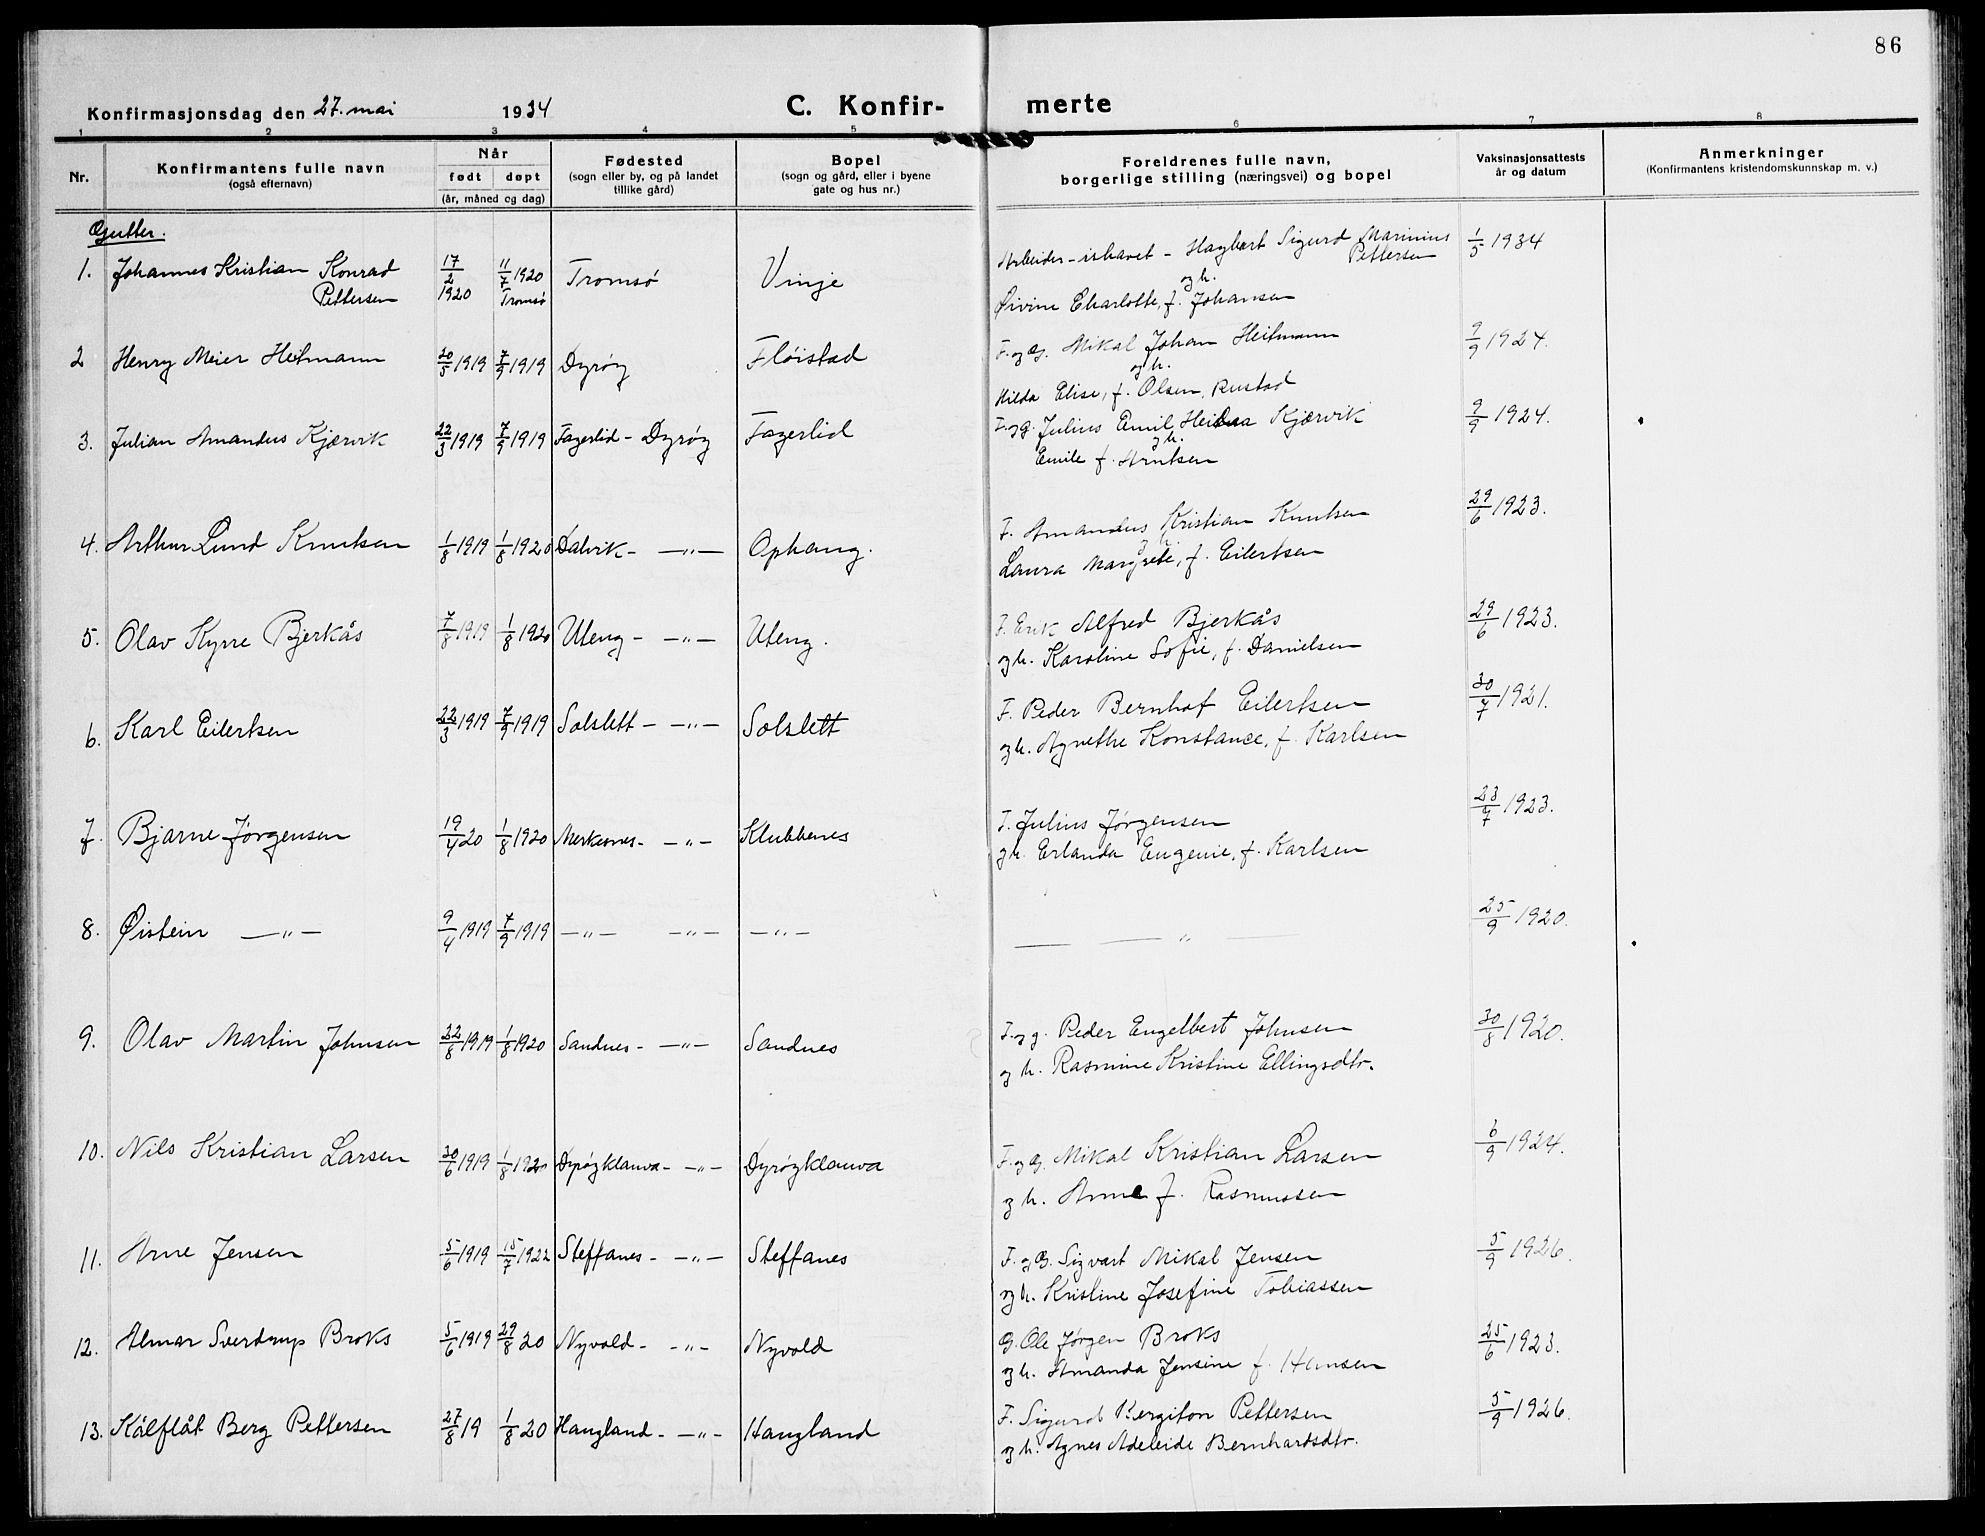 86
Konfirmasjonsdag den 27. mai 1934
C. Konfir- merte
1 2 3 4 5 6 7 8
Nr.
Konfirmantens fulle navn
(også efternavn)
Når
født døpt
(år, måned og dag)
Fødested
(sogn eller by, og på landet
tillike gård)
Bopel
(sogn og gård, eller i byene
gate og hus nr.)
Foreldrenes fulle navn,
borgerlige stilling (næringsvei) og bopel
Vaksinasjonsattests
år og datum
Anmerkninger
(Konfirmantens kristendomskunnskap m. v.)
Gutter.
1. Johannes Kristian Konrad 17/2 1920 11/7 1920 Tromsø Vinje Arbeider - ishavet - Hagbart Sigurd Marinius 1/5 1934
Pettersen Tromsø Pettersen
og h.
Øivine Charlotte, f. Johansen
2 Henry Meier Heitmann 20/5 1919 7/9 1919 Dyrøy Fløistad F. og G. Mikal Johan Heitmann 9/9 1924.
og h.
Hilda Elise, f. Olsen, Rustad
3. Julian Amandus Kjærvik 22/3 1919 7/9 1919 Fagerlid - Dyrøy Fagerlid F. og g. Julius Emil Kjærvik 9/9 1924.
og h.
Emile f. Arntsen
4. Arthur Lund Knutsen 1/8 1919 1/8 1920 Dalvik - —"— Ophaug. F. Amandus Kristian Knutsen 29/6 1923.
og h.
Laura Margrete, f. Eilertsen
5. Olav Kyrre Bjerkås 7/8 1919 1/8 1920 Uteng - —"— Uteng. F. Erik Alfred Bjerkås 29/6 1923.
og h. Karoline Sofie, f. Danielsen
6. Karl Eilertsen 22/3 1919 7/9 1919 Solslett - —"— Solslett F. Peder Bernhof Eilertsen 30/7 1921.
og h. Agnethe Konstance, f. Karlsen
7. Bjarne Jørgensen 19/4 20 1/8 1920 Merkesnes - —"— Klubbenes F. Julius Jørgensen 23/7 1923.
og h. Erlanda Eugenie, f. Karlsen
8. Øistein —"— 9/4 1919 7/9 1919 —"— —"— —"— — — " — 25/9 1920.
9. Olav Martin Johnsen 22/8 1919 1/8 1920 Sandnes - —"— Sandnes F. og g. Peder Engelbert Johnsen 30/8 1920.
og h. Rasmine Kristine Ellingsdtr.
10. Nils Kristian Larsen 30/6 1919 1/8 1920 Dyrøyklauva - —"— Dyrøyklauva F. og G. Mikal Kristian Larsen 6/9 1924.
og h. Anne f. Rasmussen
11. Arne Jensen 5/6 1919 15/7 1922 Steffanes - —"— Steffanes F. og G. Sigvart Mikal Jensen 5/9 1926.
og h. Kristine Josefine Tobiassen
12. Almar Sverdrup Broks 5/6 1919 29/8 20 Nyvold - —"— Nyvold G. Ole Jørgen Broks 25/6 1923.
og h. Amanda Jensine f. Hansen
13. Kålflåt Berg Pettersen 27/8 19 1/8 20 Haugland - —"— Haugland F. Sigurd Pettersen 5/9 1926.
og h. Agnes Adeleide Bernhardsdtr.